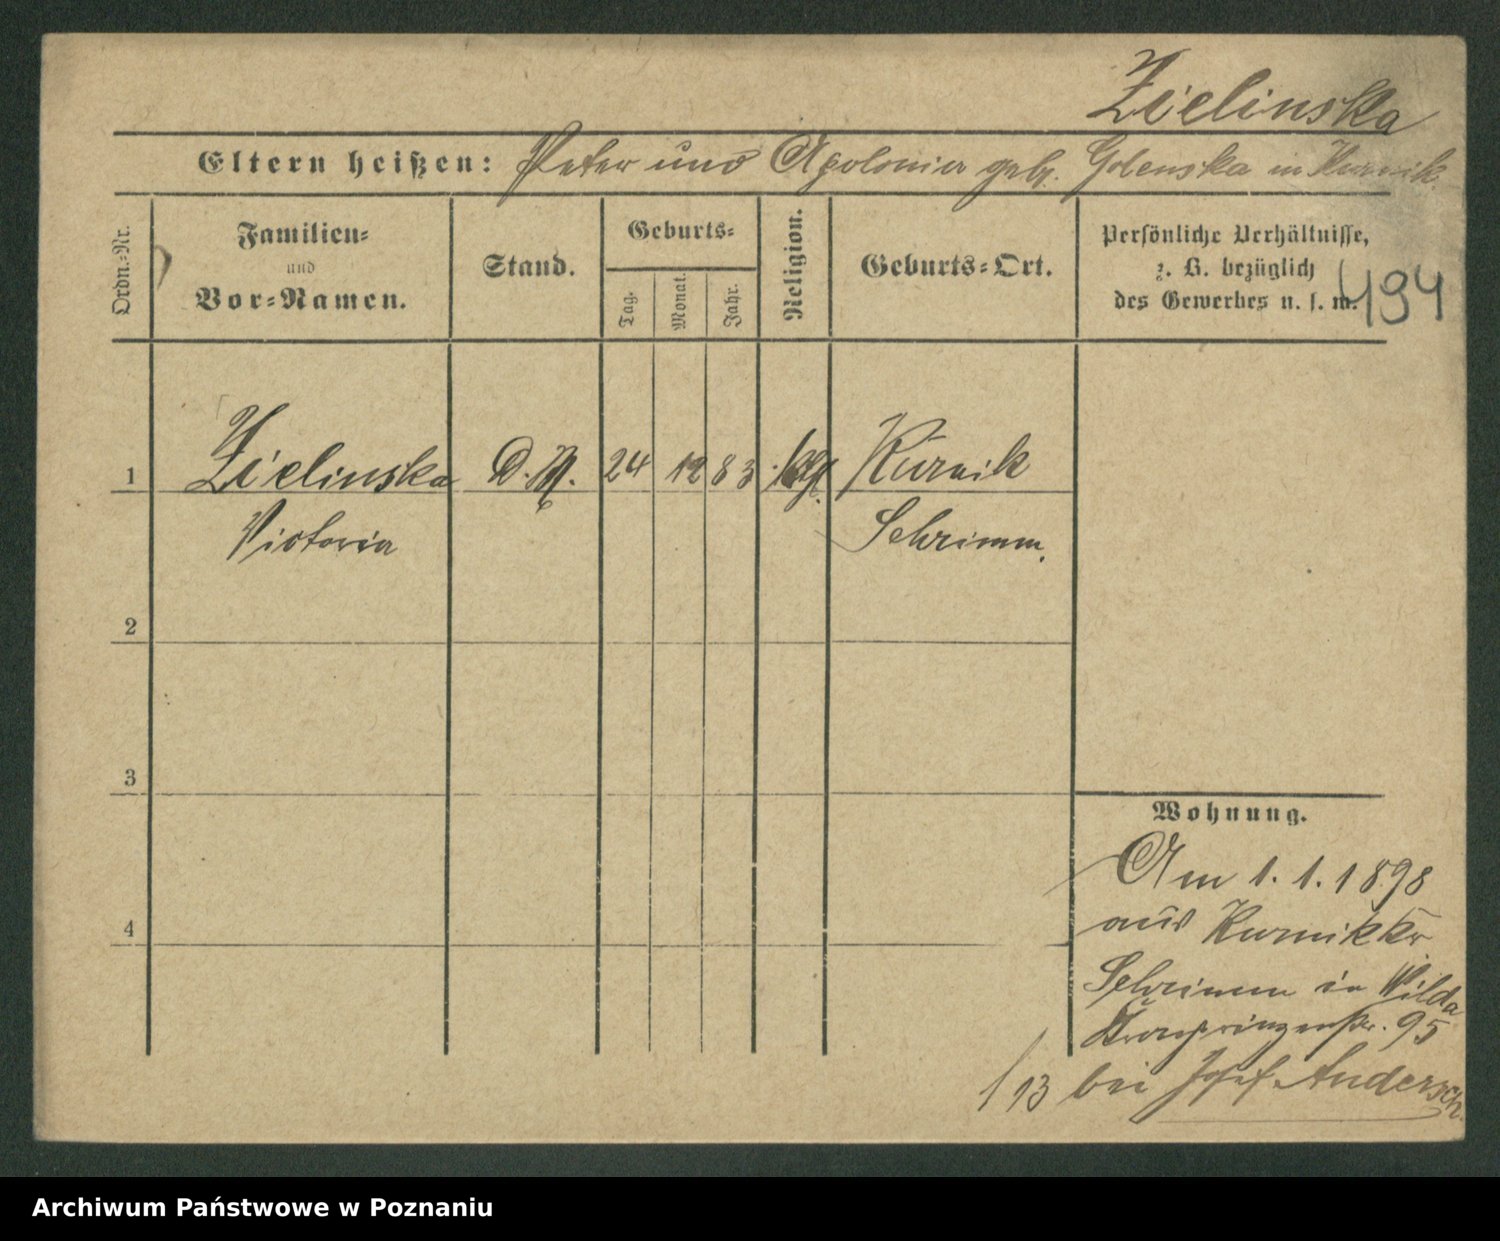 Zielinska
Eltern heißen: Peter und Apolonia geb. Golenska in Kurnik.
Ordn.-Nr.
Familien-
und
Vor-Namen.
Stand.
Geburts-
Tag.
Monat.
Jahr.
Religion.
Geburts-Ort.
Persönliche Verhältnisse,
z. B. bezüglich
des Gewerbes u. s. w.
494
1 Zielinska D. M. 24 12 83 Kurnik
Victoria Schrimm.
2
3
4
Wohnung.
Am 1. 1. 1898
aus Kurnik Kr
Schrimm in Wilda
Kronprinzenstr. 95
/13 bei Josef Andersch.
Archiwum Państwowe w Poznaniu